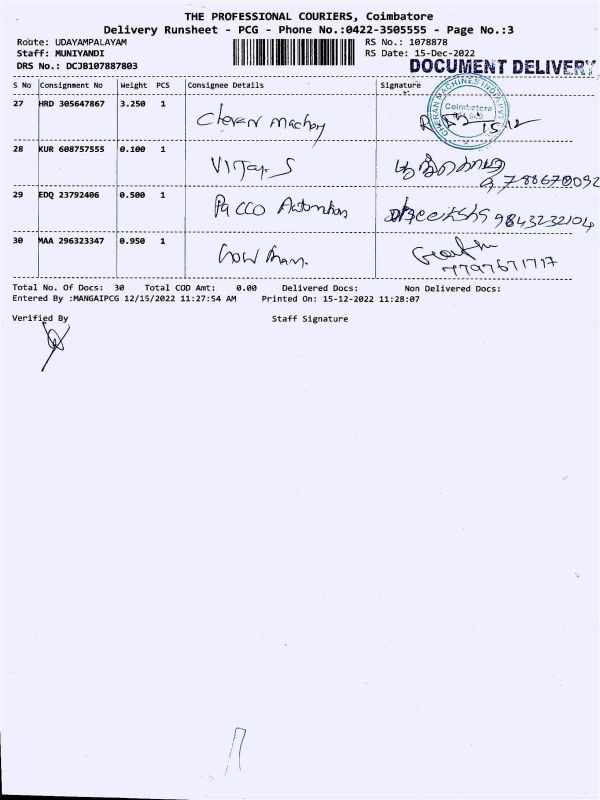 THE PROFESSIONAL COURIERS, Coimbatore
Delivery Runsheet - PCG - Phone No.:0422-3505555 - Page No.:3
Route: UDAYAMPALAYAM
RS No.: 1078878
Staff: MUNIYANDI
RS Date: 15-Dec-2022
DRS No.: DCJB107887803
DOCUMENT DELIVERY
S No Consignment No Weight PCS Consignee Details Signature
27 HRD 305647867 3.250 1 Cheran
CHERAN MACHINES INDIA PVT
Coimbatore
15/12
28 KUR 608757555 0.100 1 Vijay. S
29 EDQ 23792406 0.500 1 Pacco Automation 9843232104
30 MAA 296323347 0.950 1 Gowtham.
Total No. Of Docs: 30 Total COD Amt: 0.00 Delivered Docs: Non Delivered Docs:
Entered By :MANGAIPCG 12/15/2022 11:27:54 AM Printed On: 15-12-2022 11:28:07
Verified By Staff Signature